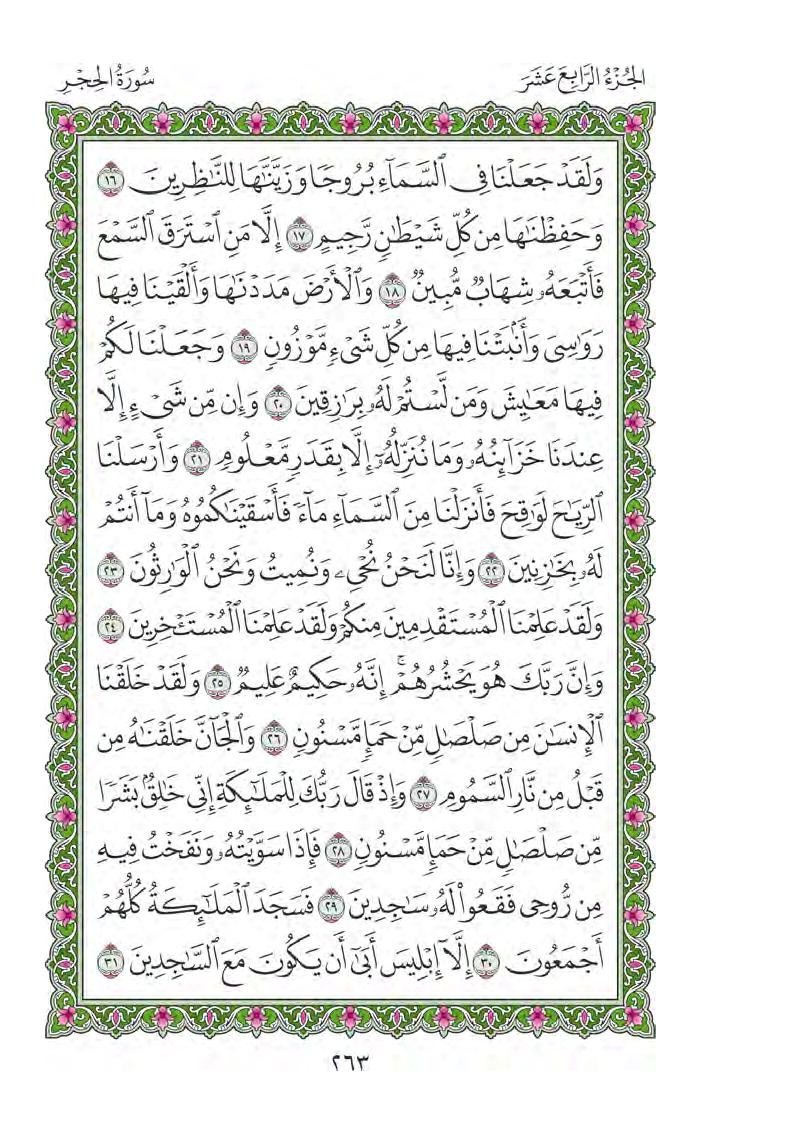 الجُزْءُ الرَّابِعَ عَشَرَ
سُورَةُ الحِجْرِ
وَلَقَدْ جَعَلْنَا فِى ٱلسَّمَآءِ بُرُوجًا وَزَيَّنَّٰهَا لِلنَّٰظِرِينَ ١٦
وَحَفِظْنَٰهَا مِن كُلِّ شَيْطَٰنٍ رَّجِيمٍ ١٧ إِلَّا مَنِ ٱسْتَرَقَ ٱلسَّمْعَ
فَأَتْبَعَهُۥ شِهَابٌ مُّبِينٌ ١٨ وَٱلْأَرْضَ مَدَدْنَٰهَا وَأَلْقَيْنَا فِيهَا
رَوَٰسِىَ وَأَنۢبَتْنَا فِيهَا مِن كُلِّ شَىْءٍ مَّوْزُونٍ ١٩ وَجَعَلْنَا لَكُمْ
فِيهَا مَعَٰيِشَ وَمَن لَّسْتُمْ لَهُۥ بِرَٰزِقِينَ ٢٠ وَإِن مِّن شَىْءٍ إِلَّا
عِندَنَا خَزَآئِنُهُۥ وَمَا نُنَزِّلُهُۥٓ إِلَّا بِقَدَرٍ مَّعْلُومٍ ٢١ وَأَرْسَلْنَا
ٱلرِّيَٰحَ لَوَٰقِحَ فَأَنزَلْنَا مِنَ ٱلسَّمَآءِ مَآءً فَأَسْقَيْنَٰكُمُوهُ وَمَآ أَنتُمْ
لَهُۥ بِخَٰزِنِينَ ٢٢ وَإِنَّا لَنَحْنُ نُحْىِۦ وَنُمِيتُ وَنَحْنُ ٱلْوَٰرِثُونَ ٢٣
وَلَقَدْ عَلِمْنَا ٱلْمُسْتَقْدِمِينَ مِنكُمْ وَلَقَدْ عَلِمْنَا ٱلْمُسْتَـْٔخِرِينَ ٢٤
وَإِنَّ رَبَّكَ هُوَ يَحْشُرُهُمْ ۚ إِنَّهُۥ حَكِيمٌ عَلِيمٌ ٢٥ وَلَقَدْ خَلَقْنَا
ٱلْإِنسَٰنَ مِن صَلْصَٰلٍ مِّنْ حَمَإٍ مَّسْنُونٍ ٢٦ وَٱلْجَآنَّ خَلَقْنَٰهُ مِن
قَبْلُ مِن نَّارِ ٱلسَّمُومِ ٢٧ وَإِذْ قَالَ رَبُّكَ لِلْمَلَٰٓئِكَةِ إِنِّى خَٰلِقٌۢ بَشَرًا
مِّن صَلْصَٰلٍ مِّنْ حَمَإٍ مَّسْنُونٍ ٢٨ فَإِذَا سَوَّيْتُهُۥ وَنَفَخْتُ فِيهِ
مِن رُّوحِى فَقَعُوا۟ لَهُۥ سَٰجِدِينَ ٢٩ فَسَجَدَ ٱلْمَلَٰٓئِكَةُ كُلُّهُمْ
أَجْمَعُونَ ٣٠ إِلَّآ إِبْلِيسَ أَبَىٰٓ أَن يَكُونَ مَعَ ٱلسَّٰجِدِينَ ٣١
٢٦٣